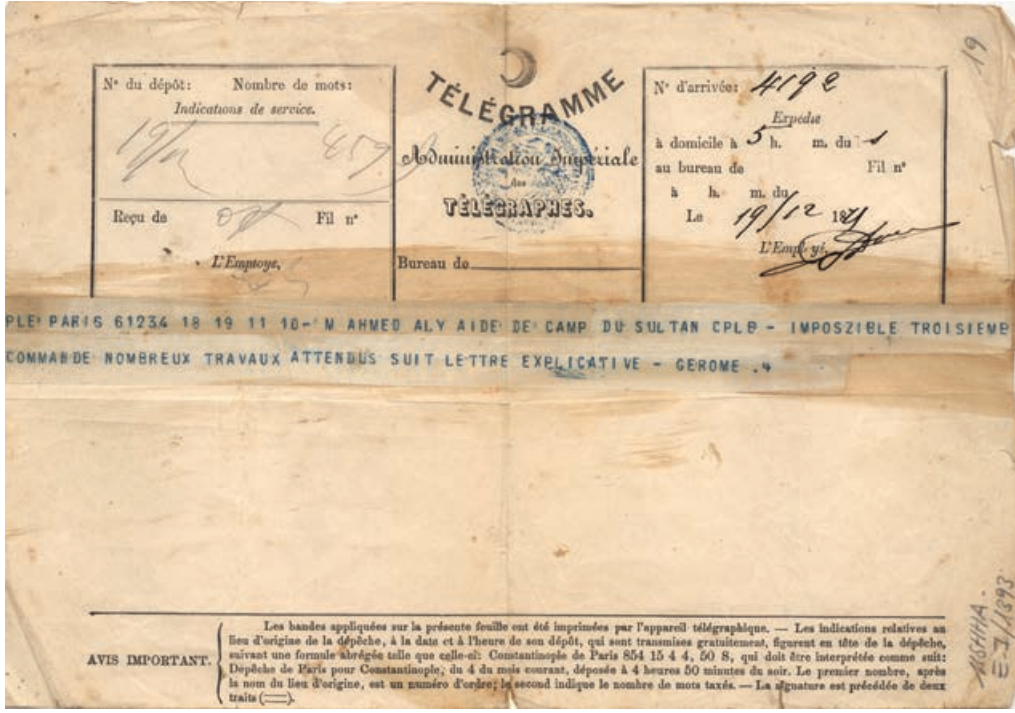 19
N° du dépôt: Nombre de mots:
Indications de service.
19/12 859
Reçu de Fil n°
L'Employé,
TÉLÉGRAMME
Administration Impériale
des
TÉLÉGRAPHES.
Bureau de
N° d'arrivée: 4192
Expédié
à domicile à 5 h. m. du
au bureau de Fil n°
à h. m. du
Le 19/12 187
L'Employé,
PLE PARIS 61234 18 19 11 10- M AHMED ALY AIDE DE CAMP DU SULTAN CPLE - IMPOSZIBLE TROISIEME
COMMANDE NOMBREUX TRAVAUX ATTENDUS SUIT LETTRE EXPLICATIVE - GEROME .4
AVIS IMPORTANT.
Les bandes appliquées sur la présente feuille ont été imprimées par l'appareil télégraphique. — Les indications relatives au
lieu d'origine de la dépêche, à la date et à l'heure de son dépôt, qui sont transmises gratuitement, figurent en tête de la dépêche,
suivant une formule abrégée telle que celle-ci: Constantinople de Paris 854 15 4 4, 50 S, qui doit être interprétée comme suit:
Dépêche de Paris pour Constantinople, du 4 du mois courant, déposée à 4 heures 50 minutes du soir. Le premier nombre, après
la nom du lieu d'origine, est un numéro d'ordre; le second indique le nombre de mots taxés. — La signature est précédée de deux
traits (==).
E-I/1393